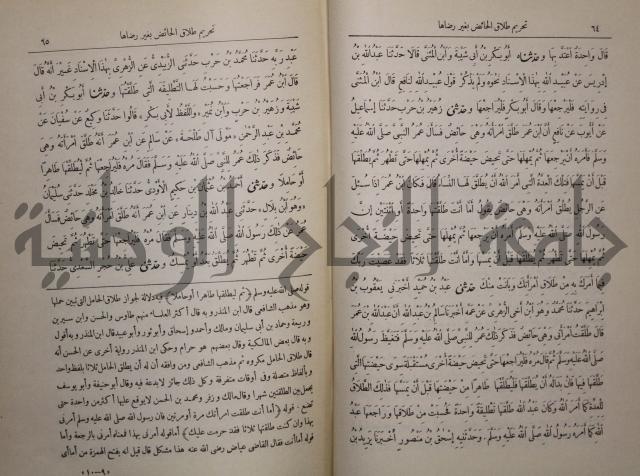 ٦٤
تحريم طلاق الحائض بغير رضاها
قال واحدة اعتد بها وحدثناه أبو بكر بن أبي شيبة وابن المثنى قالا حدثنا عبد الله بن
إدريس عن عبيد الله بهذا الاسناد نحوه ولم يذكر قول عبيد الله لنافع قال ابن المثنى
في روايته فليرجعها وقال أبو بكر فليراجعها وحدثني زهير بن حرب حدثنا إسماعيل
عن أيوب عن نافع أن ابن عمر طلق امرأته وهي حائض فسأل عمر النبي صلى الله عليه
وسلم فأمره أن يرجعها ثم يمهلها حتى تحيض حيضة أخرى ثم يمهلها حتى تطهر ثم يطلقها
قبل أن يمسها فتلك العدة التي أمر الله أن يطلق لها النساء قال فكان ابن عمر إذا سئل
عن الرجل يطلق امرأته وهي حائض يقول أما أنت طلقتها واحدة أو اثنتين إن
رسول الله صلى الله عليه وسلم أمره أن يرجعها ثم يمهلها حتى تحيض حيضة أخرى
ثم يمهلها حتى تطهر ثم يطلقها قبل أن يمسها وأما أنت طلقتها ثلاثا فقد عصيت ربك
فيما أمرك به من طلاق امرأتك وبانت منك حدثني عبد بن حميد أخبرني يعقوب بن
إبراهيم حدثنا محمد وهو ابن أخي الزهري عن عمه أخبرنا سالم بن عبد الله أن عبد الله بن عمر
قال طلقت امرأتي وهي حائض فذكر ذلك عمر للنبي صلى الله عليه وسلم فتغيظ رسول الله
صلى الله عليه وسلم ثم قال مره فليراجعها حتى تحيض حيضة أخرى مستقبلة سوى حيضتها التي
طلقها فيها فان بدا له أن يطلقها فليطلقها طاهرا من حيضتها قبل أن يمسها فذلك الطلاق
للعدة كما أمر الله وكان عبد الله طلقها تطليقة واحدة فحسبت من طلاقها وراجعها عبد
الله كما أمره رسول الله صلى الله عليه وسلم. وحدثنيه إسحق بن منصور أخبرنا يزيد بن
تحريم طلاق الحائض بغير رضاها
٦٥
عبد ربه حدثنا محمد بن حرب حدثني الزبيدي عن الزهري بهذا الاسناد غير أنه قال
قال ابن عمر فراجعتها وحسبت لها التطليقة التي طلقتها وحدثنا أبو بكر بن أبي
شيبة وزهير بن حرب وابن نمير «واللفظ لأبي بكر» قالوا حدثنا وكيع عن سفيان عن
محمد بن عبد الرحمن «مولى آل طلحة» عن سالم عن ابن عمر أنه طلق امرأته وهي
حائض فذكر ذلك عمر للنبي صلى الله عليه وسلم فقال مره فليراجعها ثم ليطلقها طاهرا
أو حاملا وحدثني أحمد بن عثمان بن حكيم الأودي حدثنا خالد بن مخلد حدثني سليمان
«وهو ابن بلال» حدثني عبد الله بن دينار عن ابن عمر أنه طلق امرأته وهي حائض فسأل
عمر عن ذلك رسول الله صلى الله عليه وسلم فقال مره فليراجعها حتى تطهر ثم تحيض
حيضة أخرى ثم تطهر ثم يطلق بعد أو يمسك وحدثني علي بن حجر السعدي حدثنا
قوله صلى الله عليه وسلم (ثم ليطلقها طاهرا أو حاملا) فيه دلالة لجواز طلاق الحامل التي تبين حملها
وهو مذهب الشافعي قال ابن المنذر وبه قال أكثر العلماء منهم طاوس والحسن وابن سيرين
وربيعة وحماد بن أبي سليمان ومالك وأحمد وإسحاق وأبو ثور وأبو عبيد قال ابن المنذر وبه أقول
وبه قال بعض المالكية وقال بعضهم هو حرام وحكى ابن المنذر رواية أخرى عن الحسن أنه
قال طلاق الحامل مكروه ثم مذهب الشافعي ومن وافقه أن له أن يطلق الحامل ثلاثا بلفظ واحد
وبألفاظ متصلة وفي أوقات متفرقة وكل ذلك جائز لا بدعة فيه وقال أبو حنيفة وأبو يوسف
يجعل بين الطلقتين شهرا وقال مالك وزفر ومحمد بن الحسن لا يوقع عليها أكثر من واحدة حتى
تضع. قوله (أما أنت طلقت امرأتك مرة أو مرتين فان رسول الله صلى الله عليه وسلم أمرني
بهذا وان كنت طلقتها ثلاثا فقد حرمت عليك) أما قوله أمرني بهذا فمعناه أمرني بالرجعة وأما
قوله أما أنت فقال القاضي عياض رضي الله عنه هذا مشكل قال قيل انه بفتح الهمزة من أما أي
«٩ - ١٠»
جامعة النجاح الوطنية